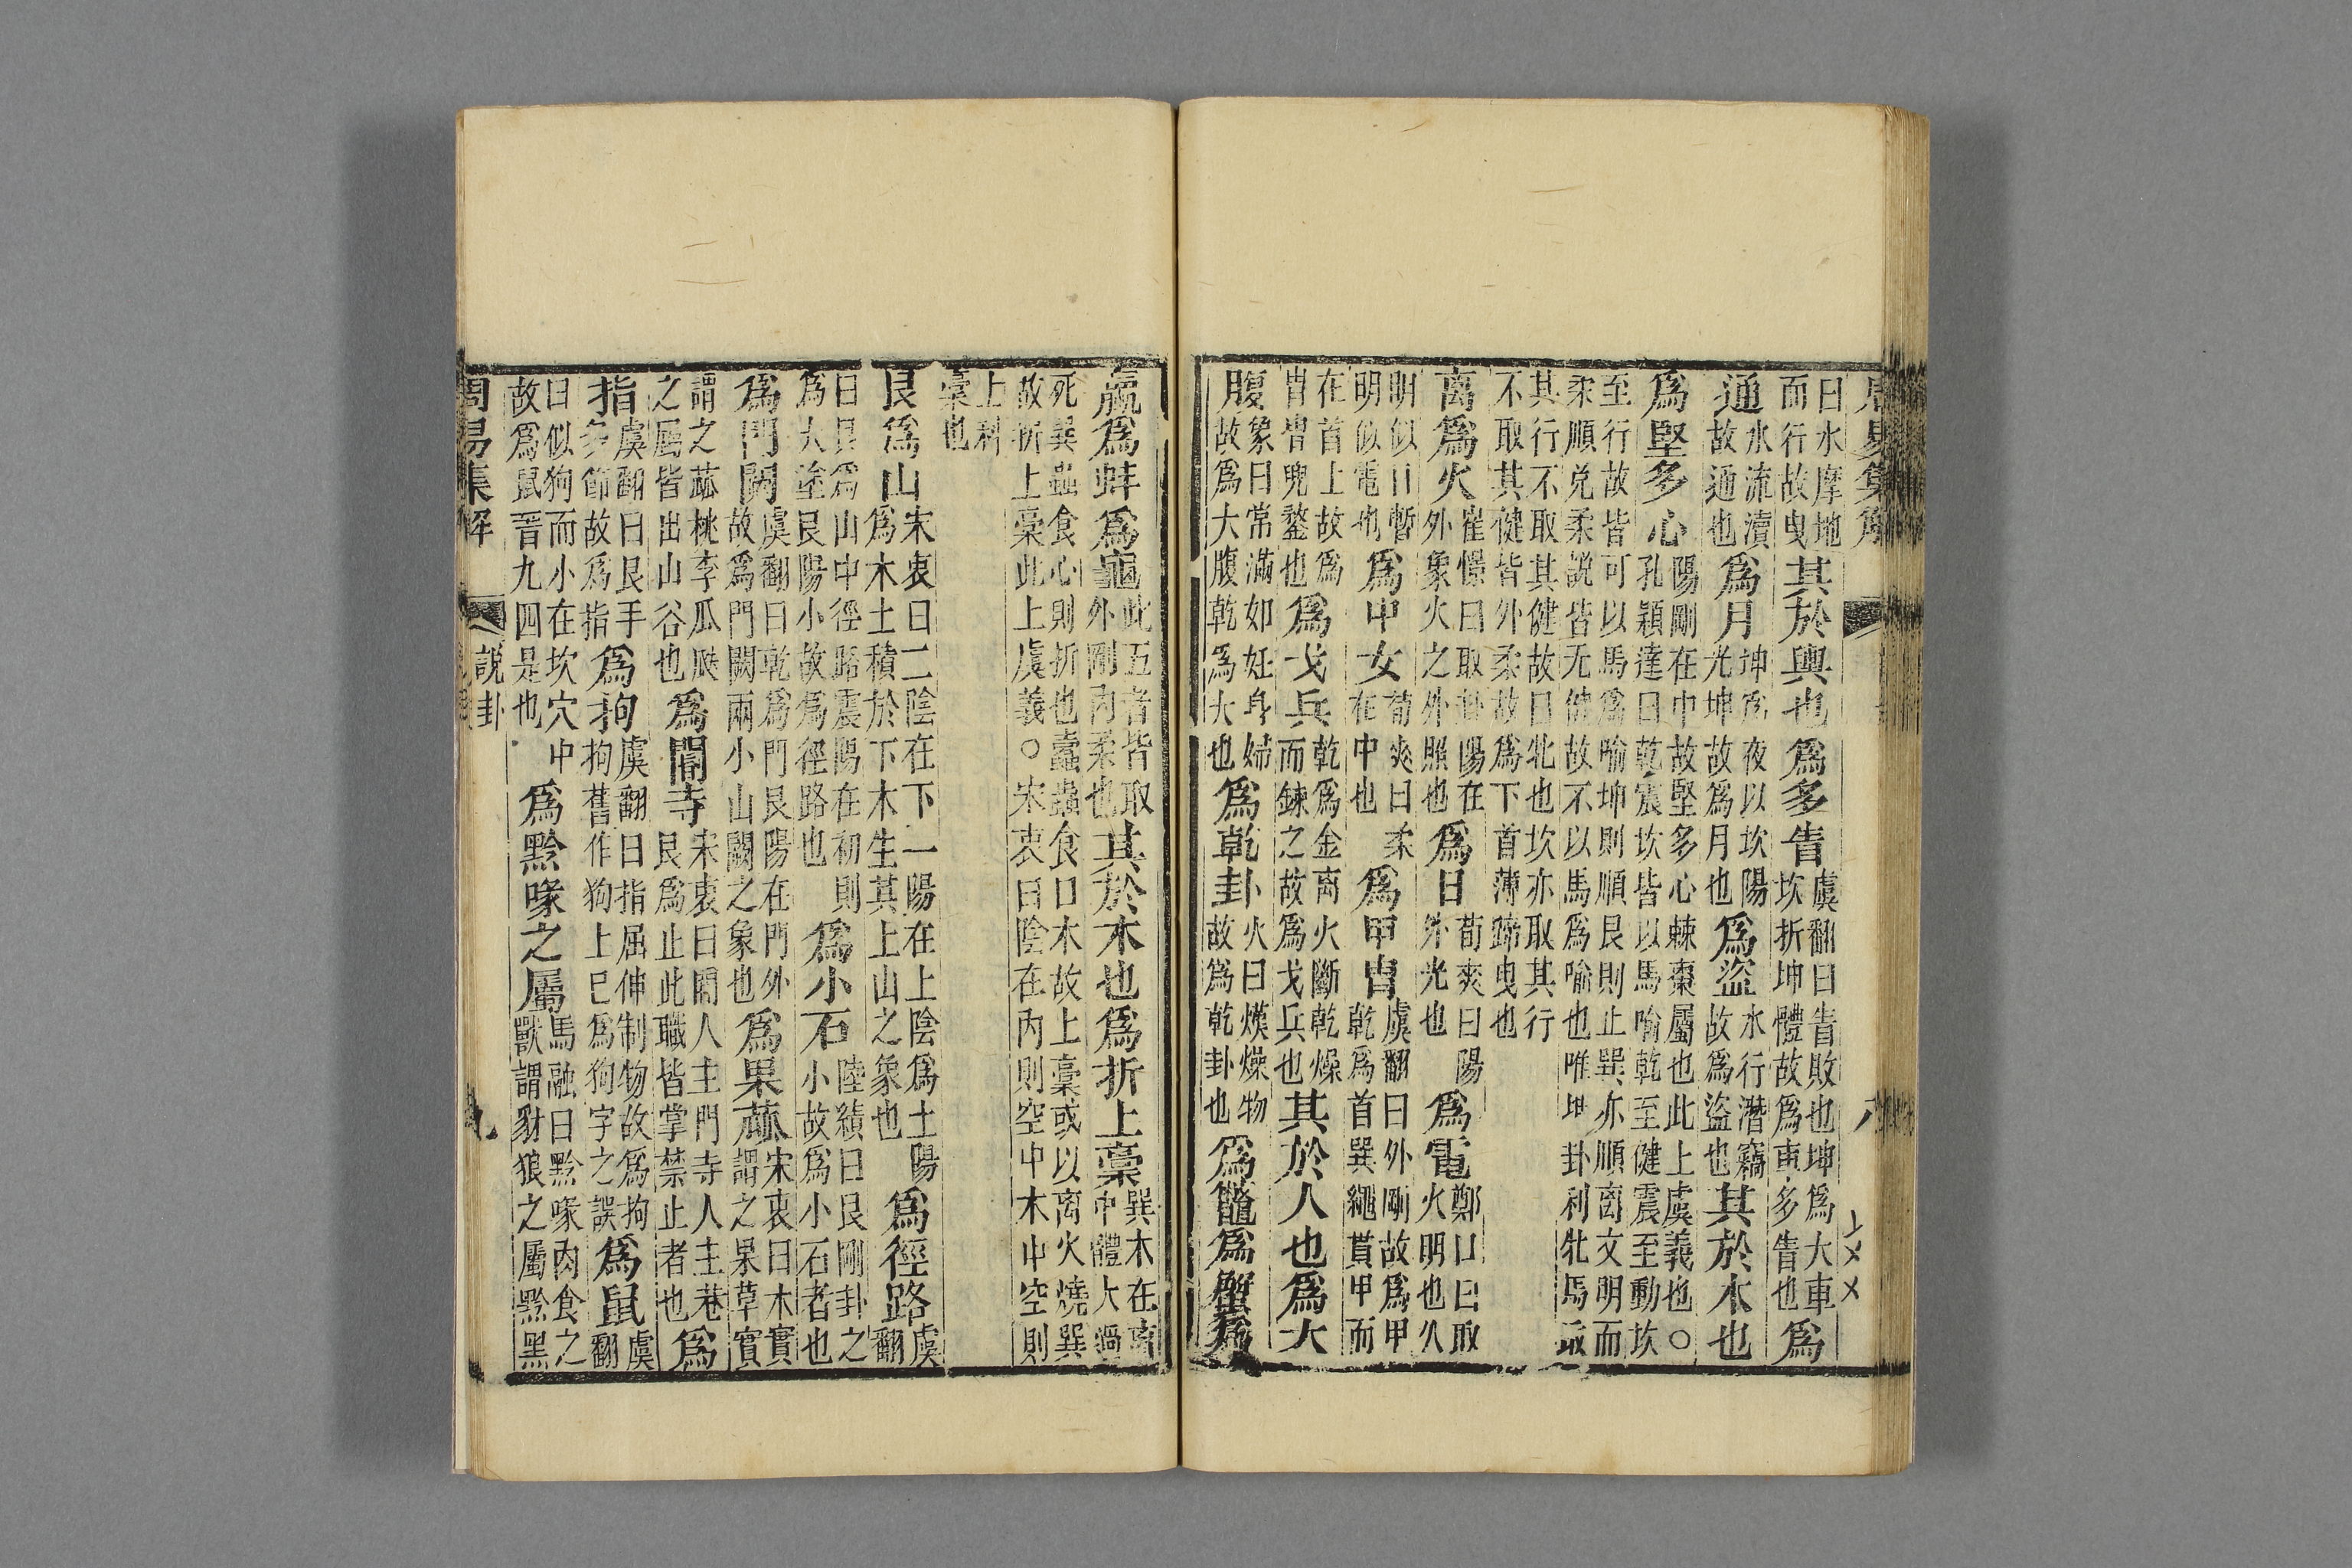 周易集解
八
曰水摩地
而行故曳其於輿也爲多眚虞翻曰眚敗也坤爲大車
坎折坤體故爲車多眚也爲
通水流瀆
故通也爲月坤爲夜以坎陽
光坤故爲月也爲盜水行潛竊
故爲盜也其於木也
爲堅多心陽剛在中故堅多心棘棗屬也此上虞義也○
孔穎達曰乾震坎皆以馬喻乾至健震至動坎
至行故皆可以馬爲喻坤則順艮則止巽亦順离文明而
柔順兌柔說皆无健故不以馬爲喻也唯坤卦利牝馬取
其行不取其健故曰牝也坎亦取其行
不取其健皆外柔故爲下首薄蹄曳也
离爲火崔憬曰取卦陽在
外象火之外照也爲日荀爽曰陽
外光也爲電鄭口曰取
火明也久
明似日暫
明似電也爲中女荀爽曰柔
在中也爲甲冑虞翻曰外剛故爲甲
乾爲首巽繩貫甲而
在首上故爲
冑冑兜鍪也爲戈兵乾爲金离火斷乾燥
而鍊之故爲戈兵也其於人也爲大
腹象曰常滿如妊身婦
故爲大腹乾爲大也爲乾卦火曰熯燥物
故爲乾卦也爲鱉爲蟹爲
蠃爲蚌爲龜此五者皆取
外剛內柔也其於木也爲折上稾巽木在离
中體大過
死巽蟲食心則折也蠹蟲食口木故上稾或以离火燒巽
故折上稾此上虞義○宋衷曰陰在內則空中木中空則
上科
稾也
艮爲山宋衷曰二陰在下一陽在上陰爲土陽
爲木土積於下木生其上山之象也爲徑路虞
翻
曰艮爲山中徑路震陽在初則
爲大塗艮陽小故爲徑路也爲小石陸績曰艮剛卦之
小故爲小石者也
爲門闕虞翻曰乾爲門艮陽在門外
故爲門闕兩小山闕之象也爲果蓏宋衷曰木實
謂之果草實
謂之蓏桃李瓜瓞
之屬皆出山谷也爲閽寺宋衷曰閽人主門寺人主巷
艮爲止此職皆掌禁止者也爲
指虞翻曰艮手
多節故爲指爲拘虞翻曰指屈伸制物故爲拘
拘舊作狗上已爲狗字之誤爲鼠虞
翻
曰似狗而小在坎穴中
故爲鼠晉九四是也爲黔喙之屬馬融曰黔喙肉食之
獸謂豺狼之屬黔黑
周易集解
說卦
九